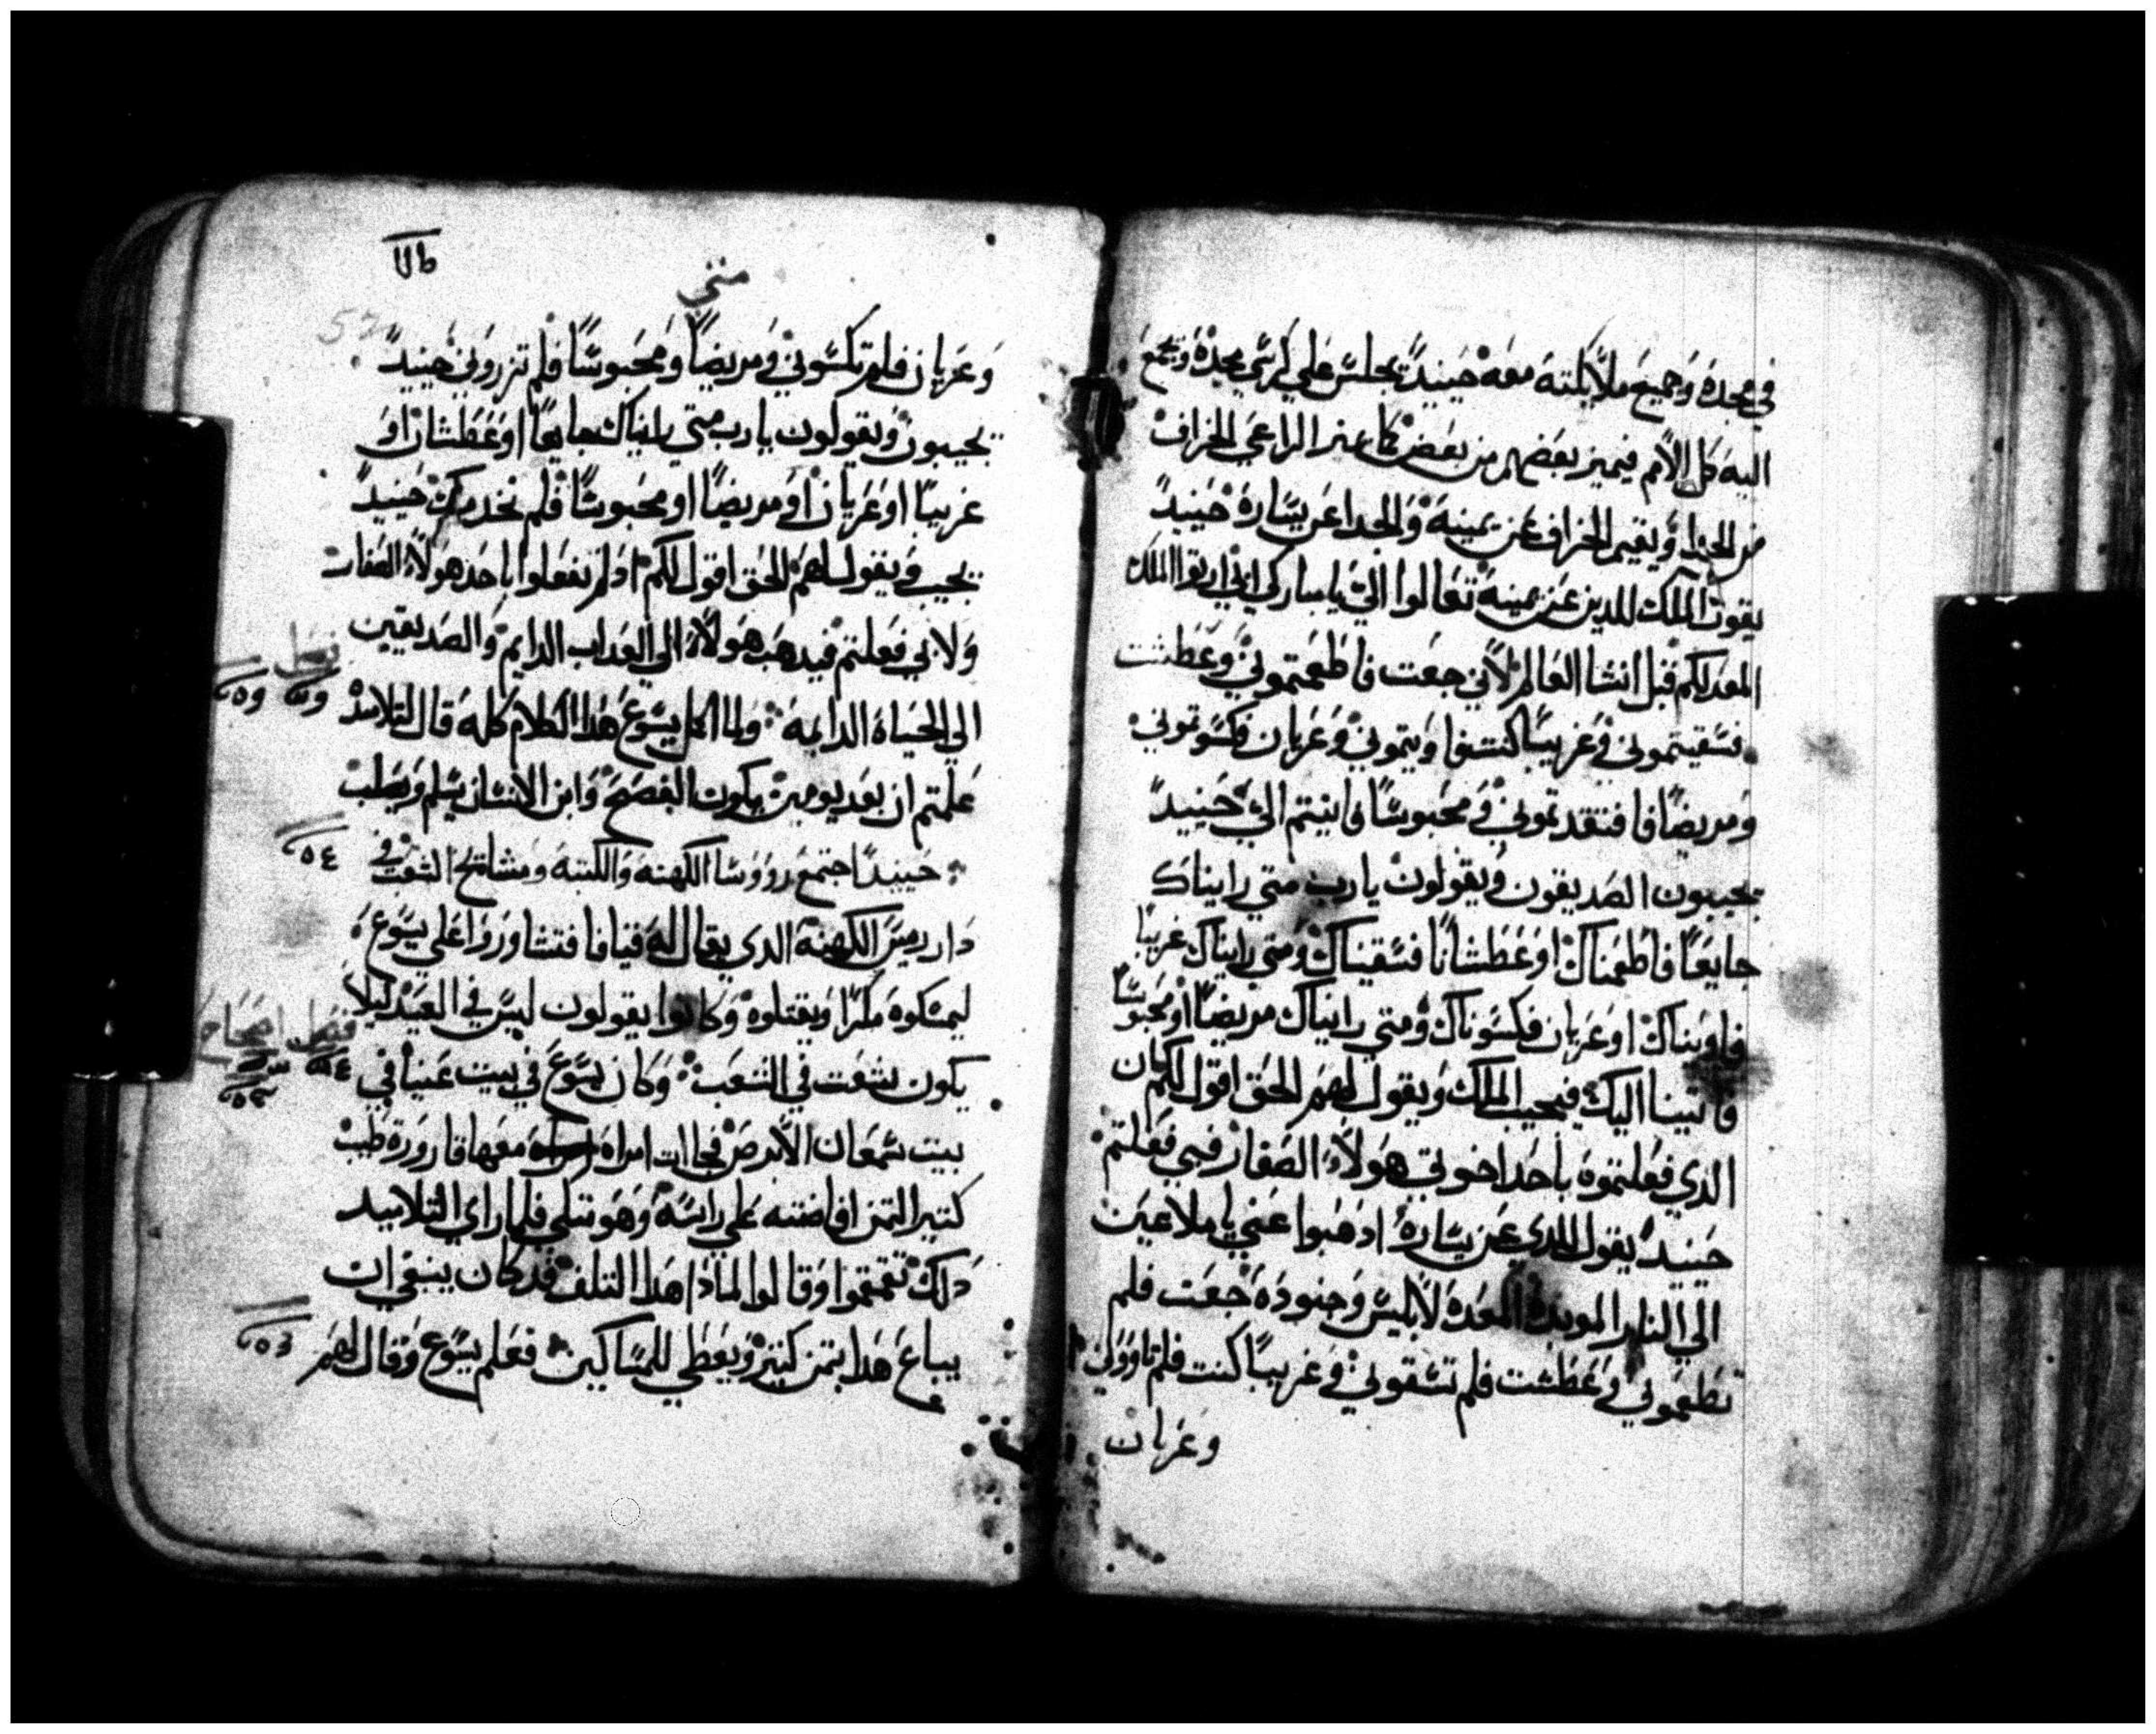 في مجده وجميع ملايكته معه حينيدً يجلس علي كرسي مجده وتجمع
اليه كل الامم فيميز بعضهم من بعض كما يميز الراعي الخراف
من الجدا ويقيم الخراف عن يمينه والجدا عن يساره حينيدً
يقول الملك للدين عن يمينه تعالوا اليّ يا مباركي ابي ارتوا الملك
المعد لكم قبل انشا العالم لاني جعت فاطعمتموني وعطشت
فسقيتموني وغريبًا كنت فاويتموني وعريان فكسوتموني
ومريضًا فافتقدتموني ومحبوسًا فاتيتم اليّ حينيدً
يجيبون الصديقون ويقولون يا رب متي رايناك
جايعًا فاطعمناك او عطشانًا فسقيناك ومتي رايناك غريبًا
فاويناك او عريان فكسوناك ومتي رايناك مريضًا او محبوسًا
فاتينا اليك فيجيب الملك ويقول لهم الحق اقول لكم ان
الدي فعلتموه باحد اخوتي هولاء الصغار فبي فعلتم
حينيدً يقول للدي عن يساره ادهبوا عني يا ملاعين
الي النار الموبده المعده لابليس وجنوده جعت فلم
تطعموني وعطشت فلم تسقوني وغريبًا كنت فلم تاووني
وعريان
متي
52
وعريان فلم تكسوني ومريضًا ومحبوسًا فلم تزروني حينيدً
يجيبون ويقولون يا رب متي رايناك جايعًا او عطشان او
غريبًا او عريان او مريضًا او محبوسًا فلم نخدمك حينيدً
يجيب ويقول لهم الحق اقول لكم اد لم تفعلوا باحد هولاء الصغار
ولا بي فعلتم فيدهب هولاء الي العداب الدايم والصديقين
الي الحياة الدايمه ولما اكمل يسوع هدا الكلام كله قال لتلاميده
علمتم ان بعد يومين يكون الفصح وابن الانسان يسلم ويصلب
حينيدًا اجتمع رووسا الكهنه والكتبه ومشايخ الشعب في
دار رييس الكهنة الدي يقال له قيافا فتشاوروا علي يسوع
ليمسكوه مكرًا ويقتلوه وكانوا يقولون ليس في العيد ليلا
يكون شغت في الشعب وكان يسوع في بيت عنيا في
بيت سمعان الابرص فجاات امراه معها قارورة طيب
كتير التمن افاضته علي راسه وهو متكي فلما راي التلاميد
دلك تقمقموا وقالوا لمادا هدا التلف قد كان ينبغي ان
يباع هدا بتمن كتير ويعطي للمساكين فعلم يسوع وقال لهم
فصل
فصل اصحاح